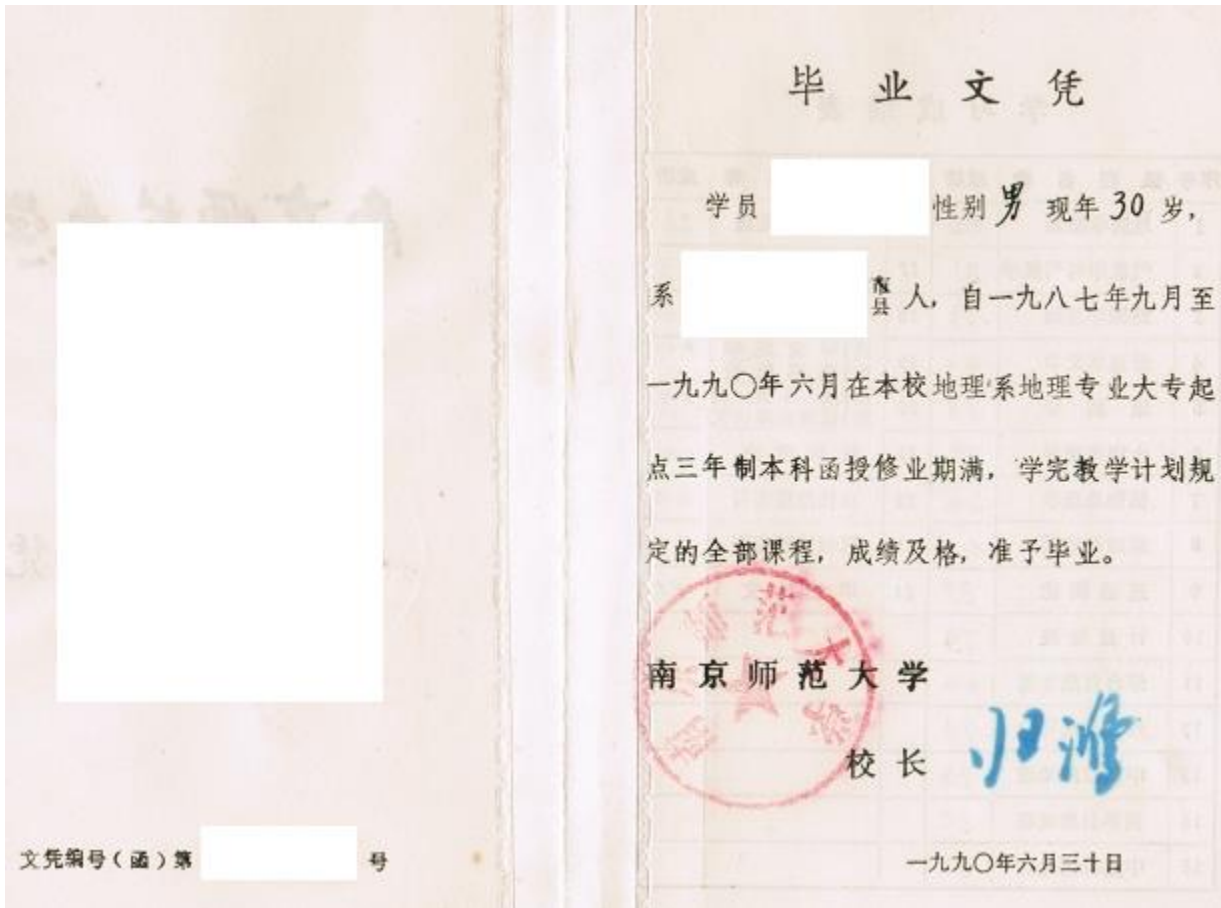 文凭编号（函）第 号
毕业文凭
学员 性别 男 现年 30 岁，
系 市县 人，自一九八七年九月至
一九九〇年六月在本校地理系地理专业大专起
点三年制本科函授修业期满，学完教学计划规
定的全部课程，成绩及格，准予毕业。
南京师范大学
校长 归鸿
一九九〇年六月三十日